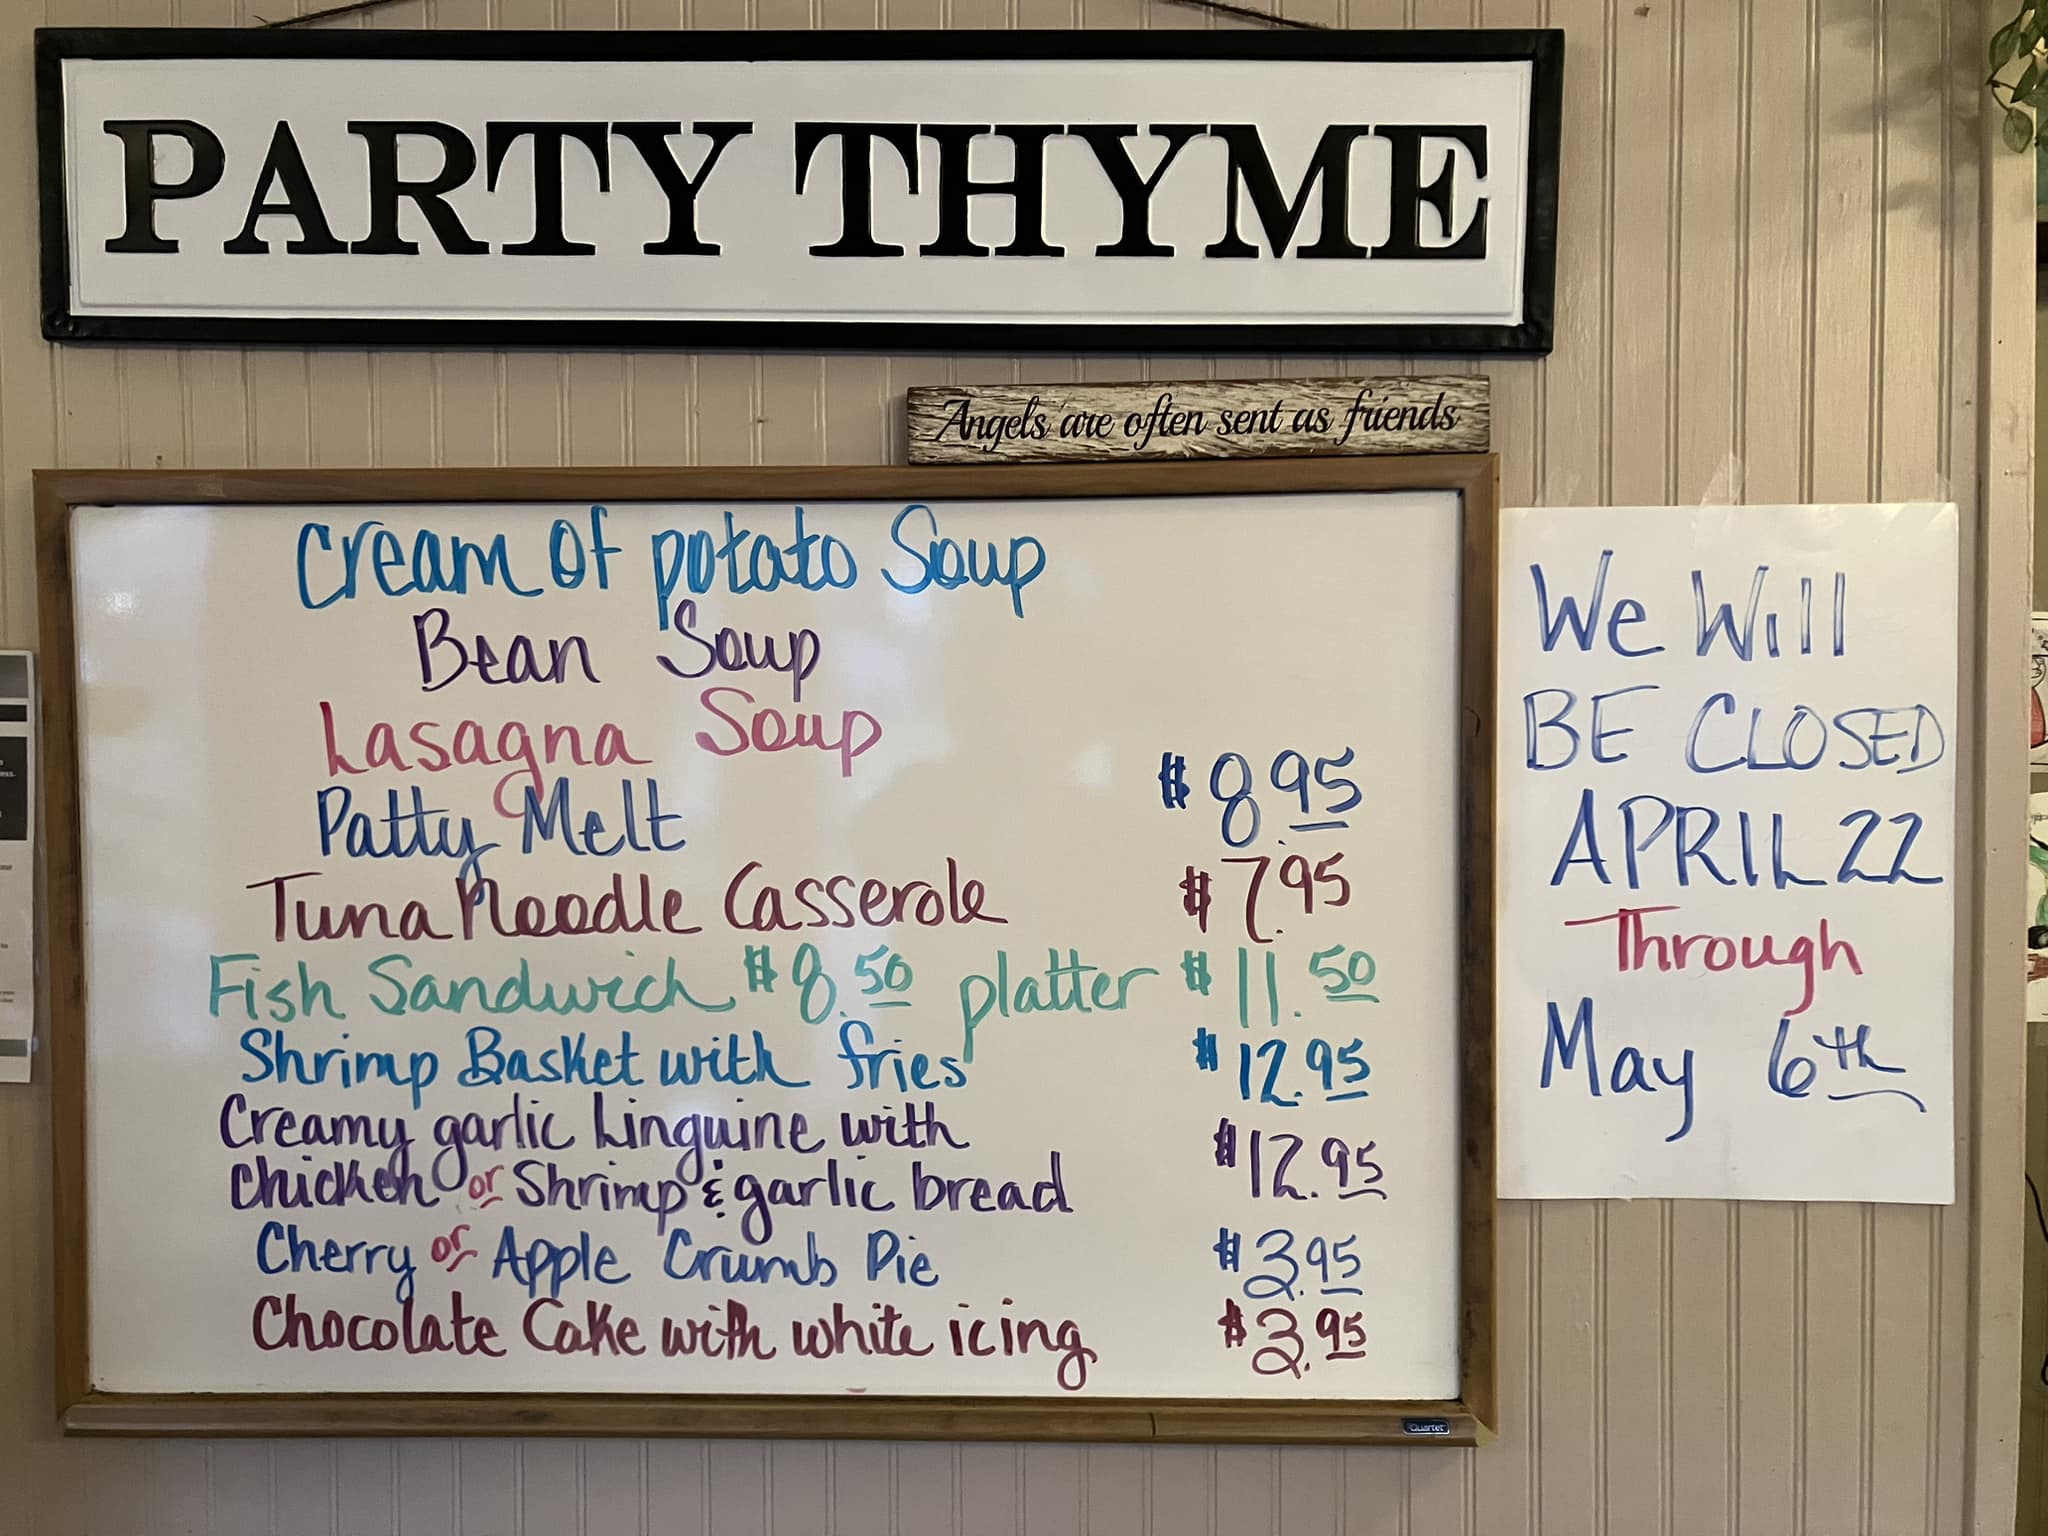 PARTY THYME
Angels are often sent as friends
Cream of potato Soup
Bean Soup
Lasagna Soup
Patty Melt $8.95
Tuna Noodle Casserole $7.95
Fish Sandwich $8.50 platter $11.50
Shrimp Basket with fries $12.95
Creamy garlic Linguine with
chicken or Shrimp & garlic bread $12.95
Cherry or Apple Crumb Pie $3.95
Chocolate Cake with white icing $3.95
Quartet
We Will
BE CLOSED
APRIL 22
Through
May 6th